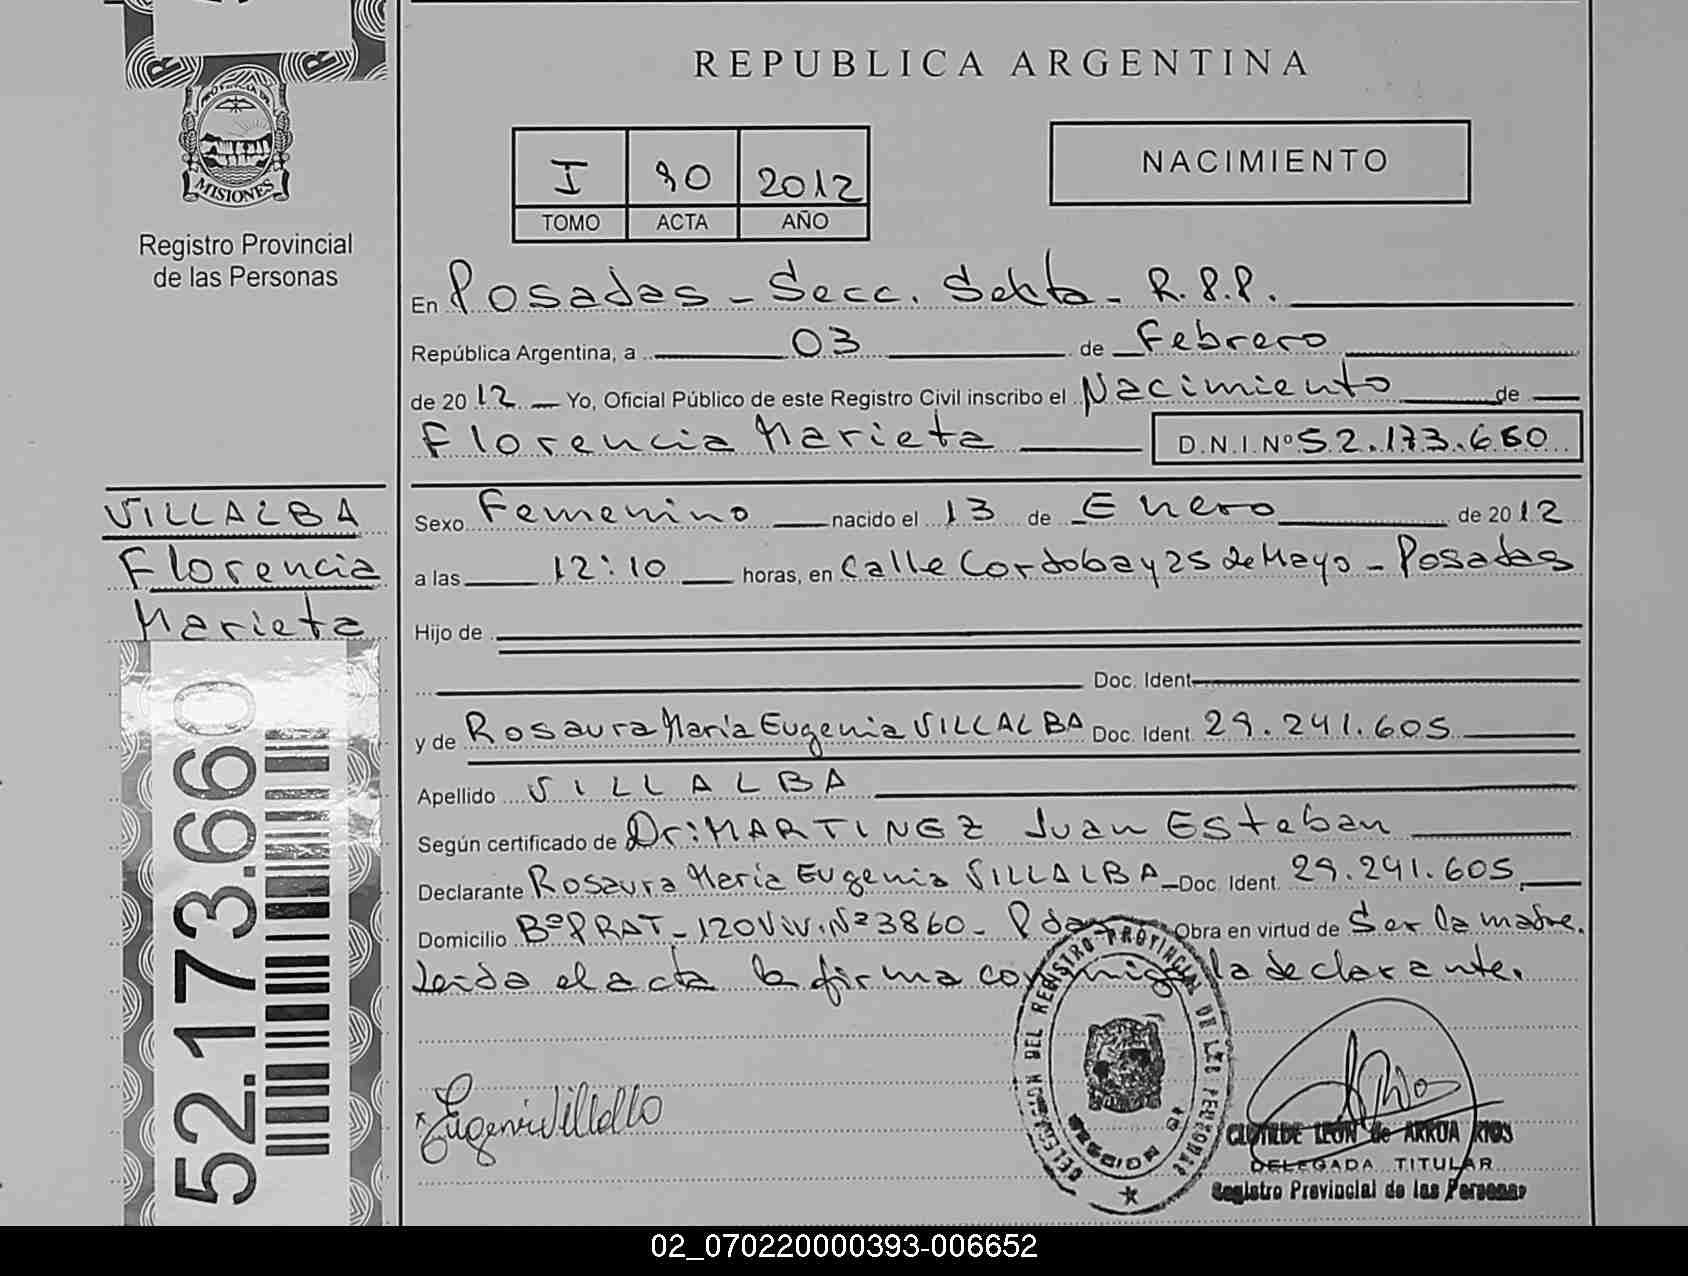 REPUBLICA ARGENTINA
MISIONES
Registro Provincial
de las Personas
I 90 2012
TOMO ACTA AÑO
NACIMIENTO
En Posadas - Secc. Sexta - R.P.P.
República Argentina, a 03 de Febrero
de 2012 Yo, Oficial Público de este Registro Civil inscribo el Nacimiento de
Florencia Marieta D.N.I.Nº 52.173.660
VILLALBA
Florencia
Marieta
52.173.660
Sexo Femenino nacido el 13 de Enero de 2012
a las 12:10 horas, en Calle Cordoba y 25 de Mayo - Posadas
Hijo de
Doc. Ident
y de Rosaura María Eugenia VILLALBA Doc. Ident. 29.241.605
Apellido VILLALBA
Según certificado de Dr: MARTINEZ Juan Esteban
Declarante Rosaura María Eugenia VILLALBA Doc. Ident. 29.241.605
Domicilio Bº PRAT - 120 Viv. Nº 3860 - Pdas Obra en virtud de Ser la madre.
Leída el acta la firma conmigo la declarante.
Eugenia Villalba
DELEGACION DEL REGISTRO PROVINCIAL DE LAS PERSONAS
CLOTILDE LEON de ARRUA RIOS
DELEGADA TITULAR
Registro Provincial de las Personas
02_070220000393-006652